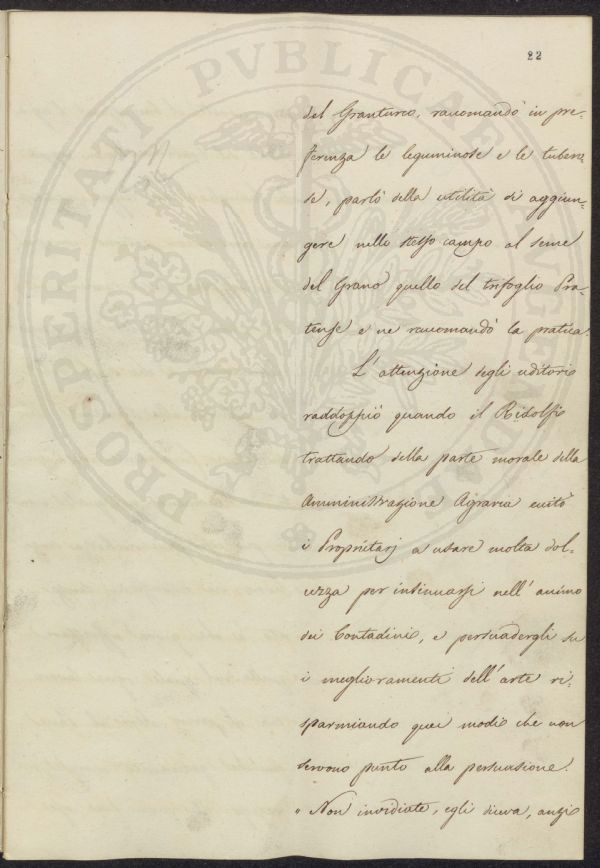 22
del Granturco, raccomandò in pre-
ferenza le leguminose e le tubero-
se, parlò della utilità di aggiun-
gere nello stesso campo al seme
del Grano quello del trifoglio Pra-
tense e ne raccomandò la pratica.
L'attenzione degli uditori
raddoppiò quando il Ridolfi
trattando della parte morale della
Amministrazione Agraria eccitò
i Proprietarj a usare molta dol-
cezza per insinuarsi nell'animo
dei Contadini, e persuadergli su
i miglioramenti dell'arte ri-
sparmiando quei modi che non
servono punto alla persuasione.
"Non invidiate, egli diceva, anzi
PROSPERITATI PVBLICAE AVGENDAE